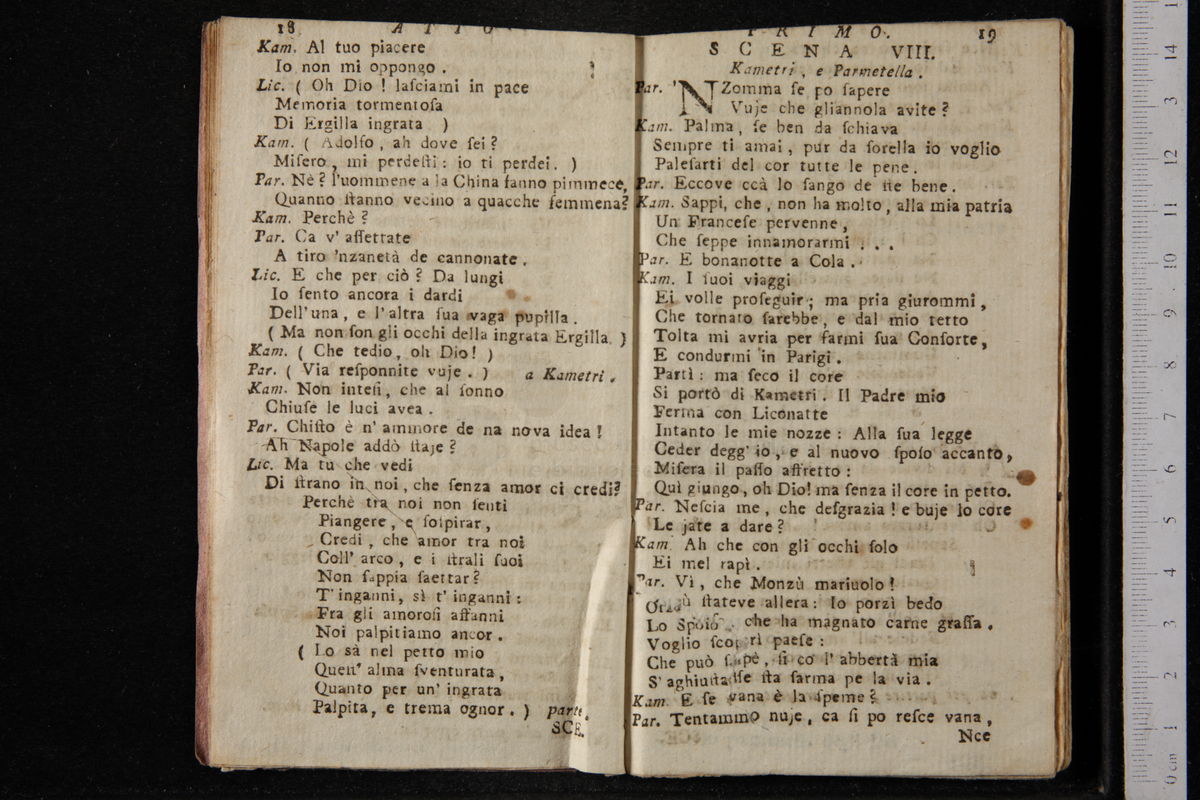 18 A T T O
Kam. Al tuo piacere
Io non mi oppongo .
Lic. ( Oh Dio ! laſciami in pace
Memoria tormentoſa
Di Ergilla ingrata )
Kam. ( Adolfo , ah dove ſei ?
Miſero , mi perdeſti : io ti perdei . )
Par. Nè ? l'uommene a la China fanno pimmece,
Quanno ſtanno vecino a quacche femmena?
Kam. Perchè ?
Par. Ca v' aſſettate
A tiro 'nzanetà de cannonate .
Lic. E che per ciò ? Da lungi
Io ſento ancora i dardi
Dell'una , e l'altra ſua vaga pupilla .
( Ma non ſon gli occhi della ingrata Ergilla. )
Kam. ( Che tedio, oh Dio! )
Par. ( Via reſponnite vuje . ) a Kametri.
Kam. Non inteſi, che al ſonno
Chiuſe le luci avea .
Par. Chiſto è n' ammore de na nova idea !
Ah Napole addò ſtaje ?
Lic. Ma tu che vedi
Di ſtrano in noi , che ſenza amor ci credi?
Perchè tra noi non ſenti
Piangere , e ſoſpirar ,
Credi , che amor tra noi
Coll' arco , e i ſtrali ſuoi
Non ſappia ſaettar ?
T' inganni, sì t' inganni :
Fra gli amoroſi affanni
Noi palpitiamo ancor .
( Lo sà nel petto mio
Queſt' alma ſventurata ,
Quanto per un' ingrata
Palpita, e trema ognor . ) parte.
SCE.
P R I M O. 19
S C E N A VIII.
Kametri , e Parmetella .
Par. 'NZomma ſe po ſapere
Vuje che gliannola avite ?
Kam. Palma , ſe ben da ſchiava
Sempre ti amai , pur da ſorella io voglio
Paleſarti del cor tutte le pene .
Par. Eccove ccà lo ſango de ſte bene .
Kam. Sappi, che , non ha molto , alla mia patria
Un Franceſe pervenne ,
Che ſeppe innamorarmi . . .
Par. E bonanotte a Cola .
Kam. I ſuoi viaggi
Ei volle proſeguir ; ma pria giurommi ,
Che tornato ſarebbe , e dal mio tetto
Tolta mi avria per farmi ſua Conſorte ,
E condurmi in Parigi .
Partì : ma ſeco il core
Si portò di Kametri . Il Padre mio
Ferma con Liconatte
Intanto le mie nozze : Alla ſua legge
Ceder degg' io , e al nuovo ſpoſo accanto ,
Miſera il paſſo affretto :
Quì giungo, oh Dio! ma ſenza il core in petto.
Par. Neſcia me , che deſgrazia ! e buje lo core
Le jate a dare ?
Kam. Ah che con gli occhi ſolo
Ei mel rapì .
Par. Vì , che Monzù mariuolo !
ſtateve allera : Io porzì bedo
Lo che ha magnato carne graſſa .
Voglio paeſe :
Che può ſi co l' abbertà mia
ſta ſarma pe la via .
Kam. E ſe vana è la ſpeme ?
Par. Tentammo nuje , ca ſi po reſce vana ,
Nce